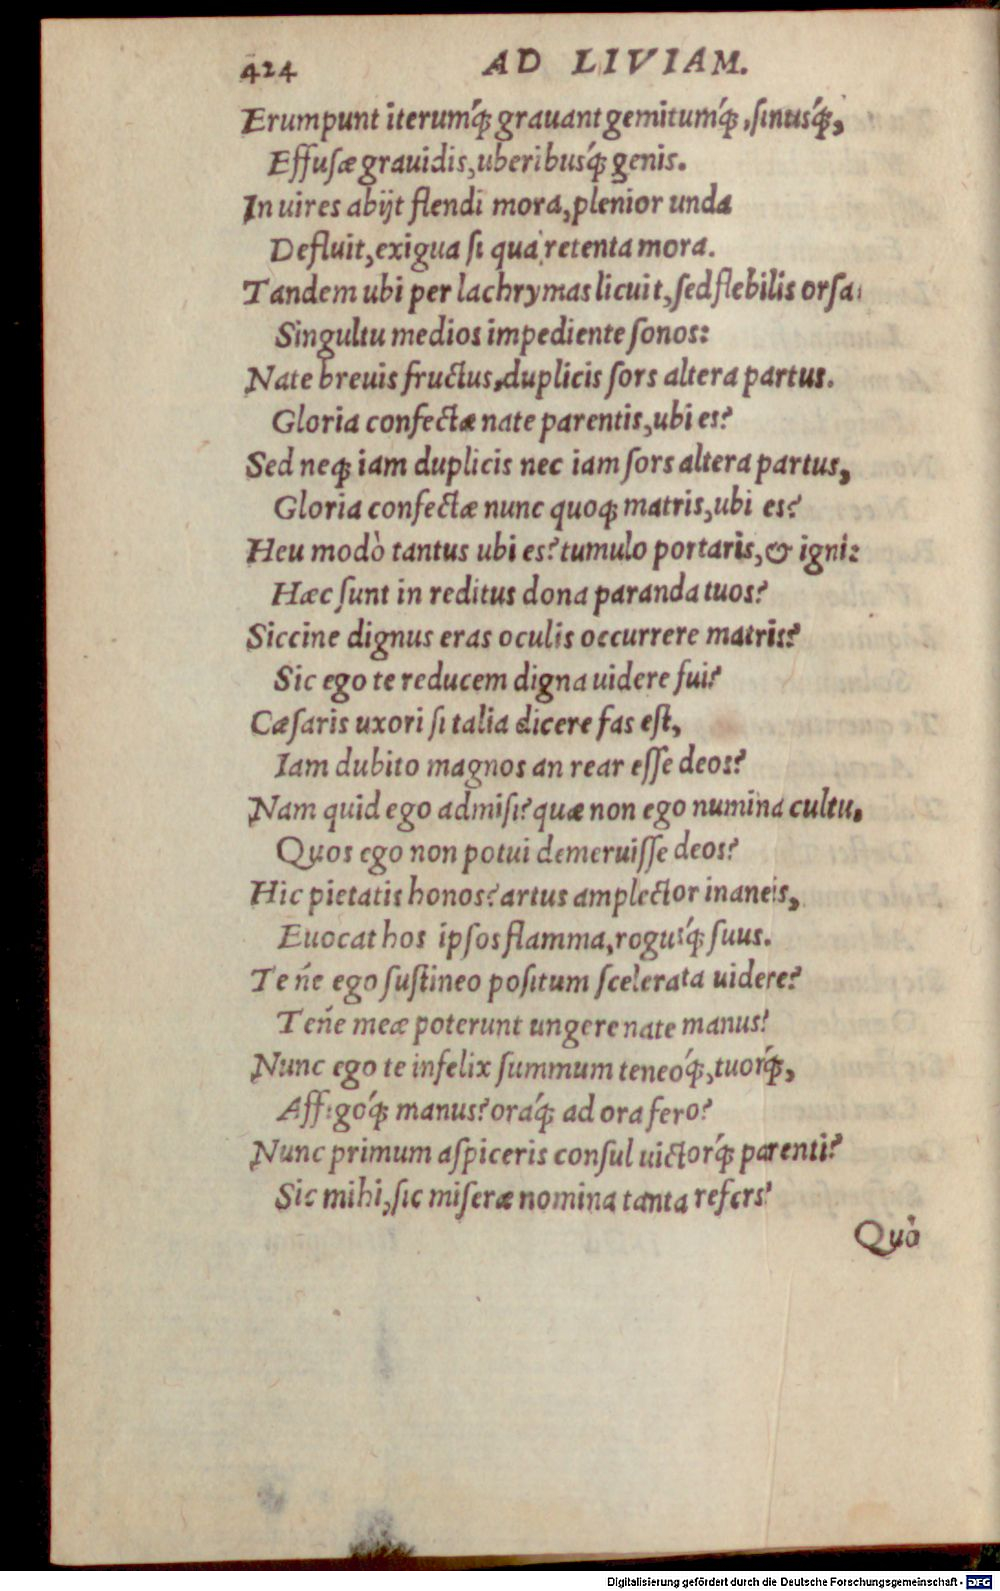 424 AD LIVIAM.
Erumpunt iterumq́; grauant gemitumq́;, sinusq́;,
Effusæ grauidis, uberibusq́; genis.
In uires abijt flendi mora, plenior unda
Defluit, exigua si qua retenta mora.
Tandem ubi per lachrymas licuit, sed flebilis orsa:
Singultu medios impediente sonos:
Nate breuis fructus, duplicis sors altera partus.
Gloria confectæ nate parentis, ubi es?
Sed neq; iam duplicis nec iam sors altera partus,
Gloria confectæ nunc quoq; matris, ubi es?
Heu modò tantus ubi es? tumulo portaris, & igni:
Hæc sunt in reditus dona paranda tuos?
Siccine dignus eras oculis occurrere matris?
Sic ego te reducem digna uidere fui?
Cæsaris uxori si talia dicere fas est,
Iam dubito magnos an rear esse deos?
Nam quid ego admisi? quæ non ego numina cultu,
Quos ego non potui demeruisse deos?
Hic pietatis honos? artus amplector inaneis,
Euocat hos ipsos flamma, rogusq́; suus.
Teńe ego sustineo positum scelerata uidere?
Teńe meæ poterunt ungere nate manus?
Nunc ego te infelix summum teneoq́;, tuorq́;,
Affigoq́; manus? oraq́; ad ora fero?
Nunc primum aspiceris consul uictorq́; parenti?
Sic mihi, sic miseræ nomina tanta refers?
Quò
Digitalisierung gefördert durch die Deutsche Forschungsgemeinschaft - DFG